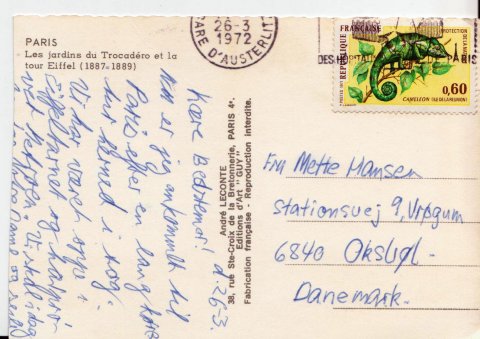 PARIS
Les jardins du Trocadéro et la
tour Eiffel (1887-1889)
26-3
1972
GARE D'AUSTERLITZ
RÉPUBLIQUE FRANÇAISE
PROTECTION DE LA NATURE
0,60
CAMÉLÉON (ILE DE LA RÉUNION)
DE PARIS
André LECONTE
38, rue Ste-Croix de la Bretonnerie, PARIS 4e.
Editions d'Art "GUY"
Fabrication française - Reproduction interdite.
Kære Bedstemor! d 26-3.
Nu er jeg ankommet til
Paris efter en lang
tur herned i tog.
Vi har været oppe i
Eiffeltårnet og
med metroen. Vi skal i dag
Fru Mette Hansen
Stationsvej 9, Vrøgum
6840 Oksbøl.
Danemark.